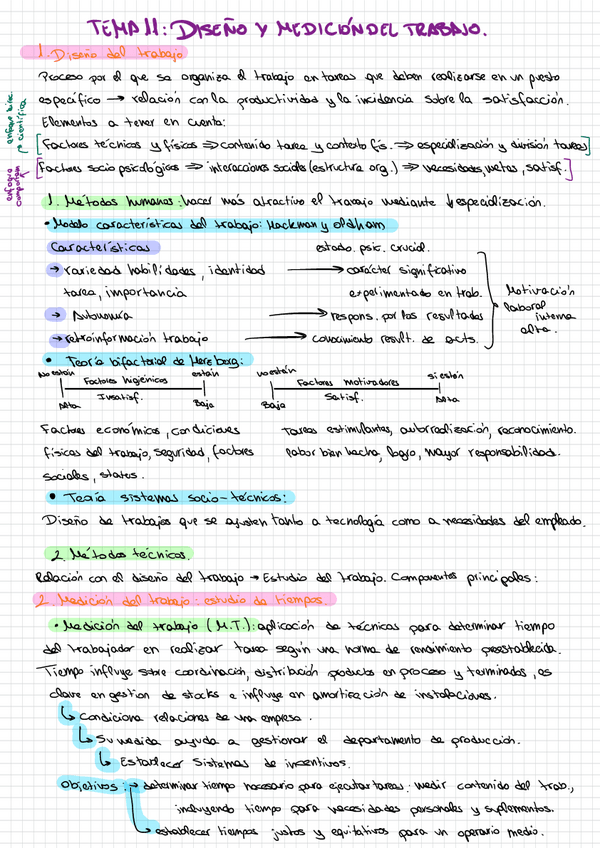 TEMA 11: DISEÑO Y MEDICIÓN DEL TRABAJO.
1. Diseño del trabajo
Proceso por el que se organiza el trabajo en tareas que deben realizarse en un puesto
específico → relación con la productividad y la incidencia sobre la satisfacción.
Elementos a tener en cuenta:
[Factores técnicos y físicos ⇒ contenido tarea y contexto fís. ⇒ especialización y división tareas]
científica
[Factores socio psicológicos ⇒ interacciones sociales (estructura org.) ⇒ necesidades, metas, satisf.]
enfoque
1. Métodos humanos: hacer más atractivo el trabajo mediante ↓ especialización.
• Modelo características del trabajo: Hackman y oldham
Características estado. psic. crucial.
→ variedad habilidades, identidad → carácter significativo
tarea, importancia experimentado en trab.
→ Autonomía → respons. por los resultados
→ retroinformación trabajo → conocimiento result. de acts.
Motivación
laboral
interna
alta.
• Teoría bifactorial de Herzberg:
No están Factores higiénicos están no están Factores motivadores si están
Alta Insatisf. Baja Baja Satisf. Alta
Factores económicos, condiciones Tareas estimulantes, autorrealización, reconocimiento.
físicas del trabajo, seguridad, factores labor bien hecha, logro, mayor responsabilidad.
sociales, status.
• Teoría sistemas socio-técnicos:
Diseño de trabajos que se ajusten tanto a tecnología como a necesidades del empleado.
2. Métodos técnicos.
Relación con el diseño del trabajo → Estudio del trabajo. Componentes principales:
2. Medición del trabajo: estudio de tiempos.
• Medición del trabajo (M.T.): aplicación de técnicas para determinar tiempo
del trabajador en realizar tarea según una norma de rendimiento preestablecida.
Tiempo influye sobre coordinación, distribución productos en proceso y terminados, es
clave en gestion de stocks e influye en amortización de instalaciones.
↳ Condiciona relaciones de una empresa.
↳ Su medida ayuda a gestionar el departamento de producción.
↳ Establecer Sistemas de incentivos.
Objetivos: → determinar tiempo necesario para ejecutar tareas: medir contenido del trab.,
incluyendo tiempo para necesidades personales y suplementos.
↳ establecer tiempos justos y equitativos para un operario medio.